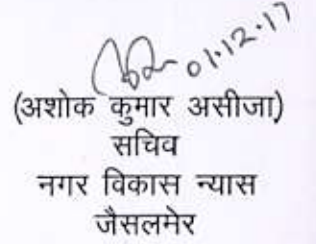 01.12.17
(अशोक कुमार असीजा)
सचिव
नगर विकास न्यास
जैसलमेर